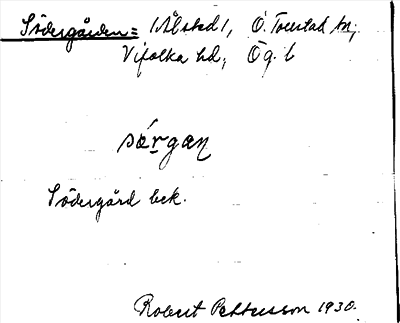 Södergården = (Ålstad), Ö. Tollstad sn;
Vifolka hd, Ög. l
sǿrgan
Södergård bek.
Robert Pettersson 1930.